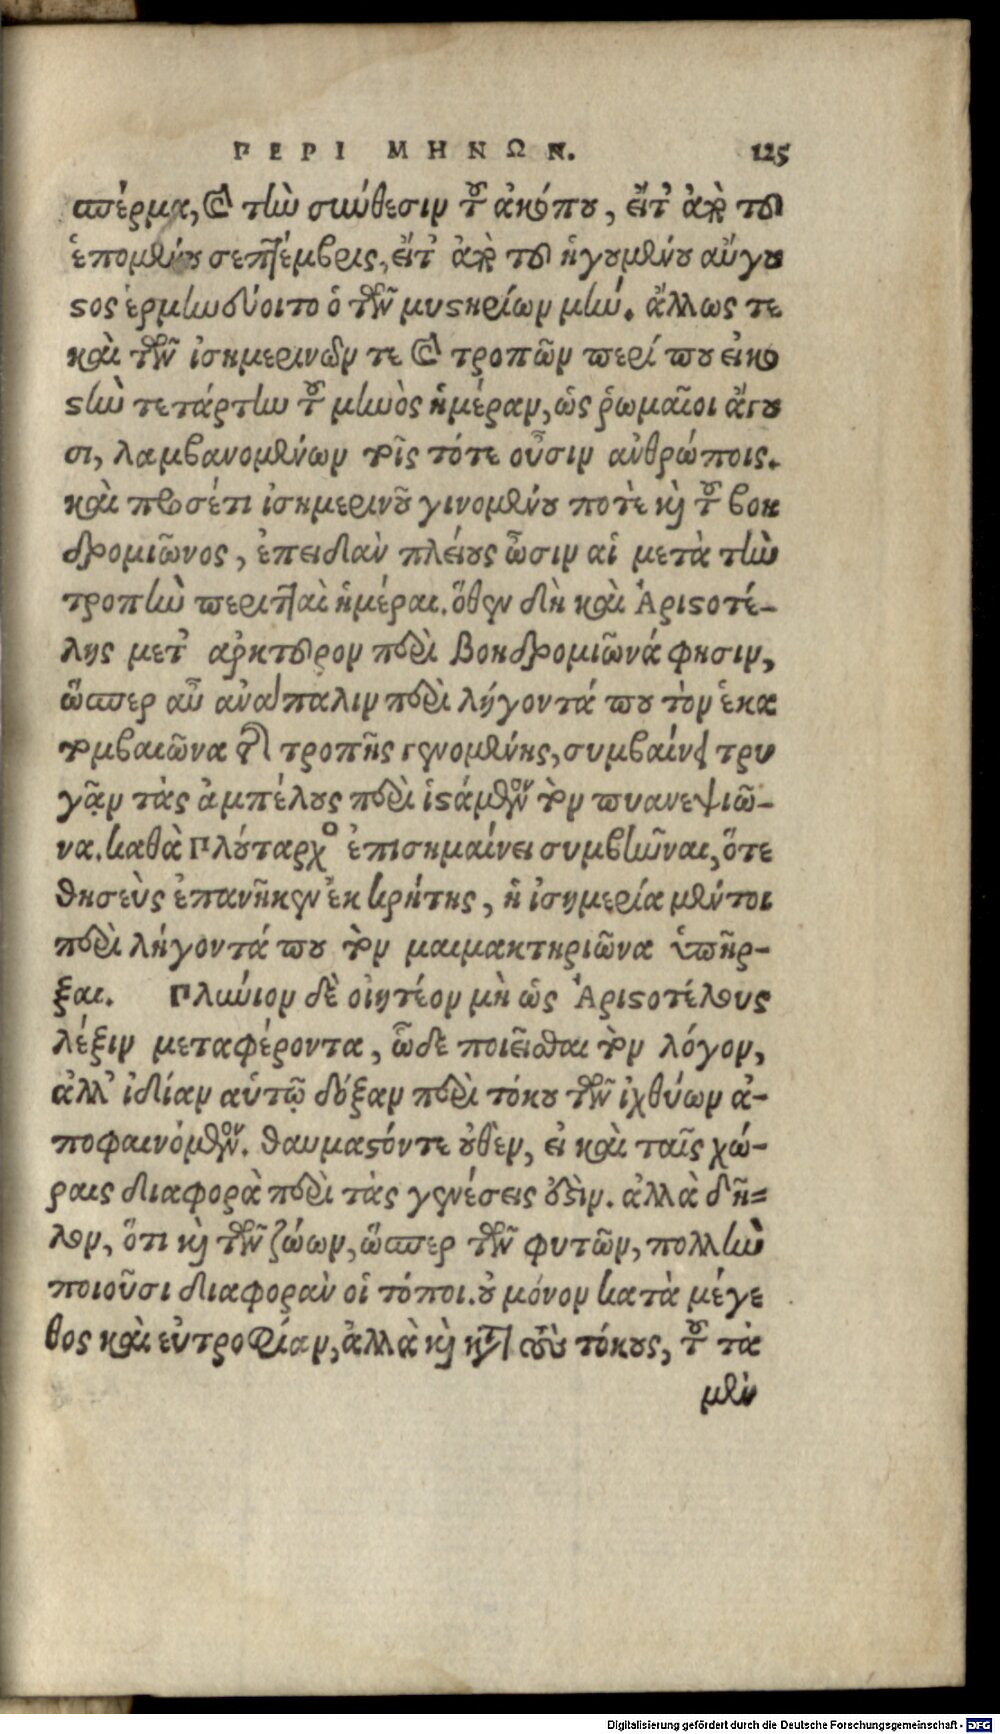 ΠΕΡΙ ΜΗΝΩΝ. 125
σπέρμα, καὶ τὴν σύνθεσιν τοῦ ἀκόπου, εἴτ' ἀπὸ τοῦ
ἑπομένου σεπτέμβρις, εἴτ' ἀπὸ τοῦ ἡγουμένου αὔγου
στος ἑρμηνεύοιτο ὁ τῶν μυστηρίων μήν. ἄλλως τε
καὶ τῶν ἰσημερινῶν τε καὶ τροπῶν περί που εἰκο
στὴν τετάρτην τοῦ μηνὸς ἡμέραν, ὡς ῥωμαῖοι ἄγου
σι, λαμβανομένων τοῖς τότε οὖσιν ἀνθρώποις.
καὶ προσέτι ἰσημερινοῦ γινομένου ποτὲ καὶ τοῦ βοη
δρομιῶνος, ἐπειδὰν πλείους ὦσιν αἱ μετὰ τὴν
τροπὴν περιτταὶ ἡμέραι. ὅθεν δὴ καὶ Ἀριστοτέ-
λης μετ' ἀρκτοῦρον περὶ βοηδρομιῶνά φησιν,
ὥσπερ αὖ ἀνάπαλιν περὶ λήγοντά που τὸν ἑκα
τομβαιῶνα τῆς τροπῆς γενομένης, συμβαίνει τρυ
γᾷν τὰς ἀμπέλους περὶ ἱστάμενον τὸν πυανεψιῶ-
να. καθὰ Πλούταρχος ἐπισημαίνει συμβῆναι, ὅτε
θησεὺς ἐπανῆκεν ἐκ κρήτης, ἡ ἰσημερία μέντοι
περὶ λήγοντά που τὸν μαιμακτηριῶνα ὑπῆρ-
ξαι. Πλίνιον δὲ οἰητέον μὴ ὡς Ἀριστοτέλους
λέξιν μεταφέροντα, ὧδε ποιεῖσθαι τὸν λόγον,
ἀλλ' ἰδίαν αὑτῷ δόξαν περὶ τόκου τῶν ἰχθύων ἀ-
ποφαινόμενον. θαυμαστόντε οὐθὲν, εἰ καὶ ταῖς χώ-
ραις διαφορὰ περὶ τὰς γενέσεις ἐστὶν. ἀλλὰ δῆ-
λον, ὅτι καὶ τῶν ζώων, ὥσπερ τῶν φυτῶν, πολλὴν
ποιοῦσι διαφορὰν οἱ τόποι. οὐ μόνον κατὰ μέγε
θος καὶ εὐτροφίαν, ἀλλὰ καὶ κατὰ τοὺς τόκους, τοῦ τὰ
μὲν
Digitalisierung gefördert durch die Deutsche Forschungsgemeinschaft - DFG